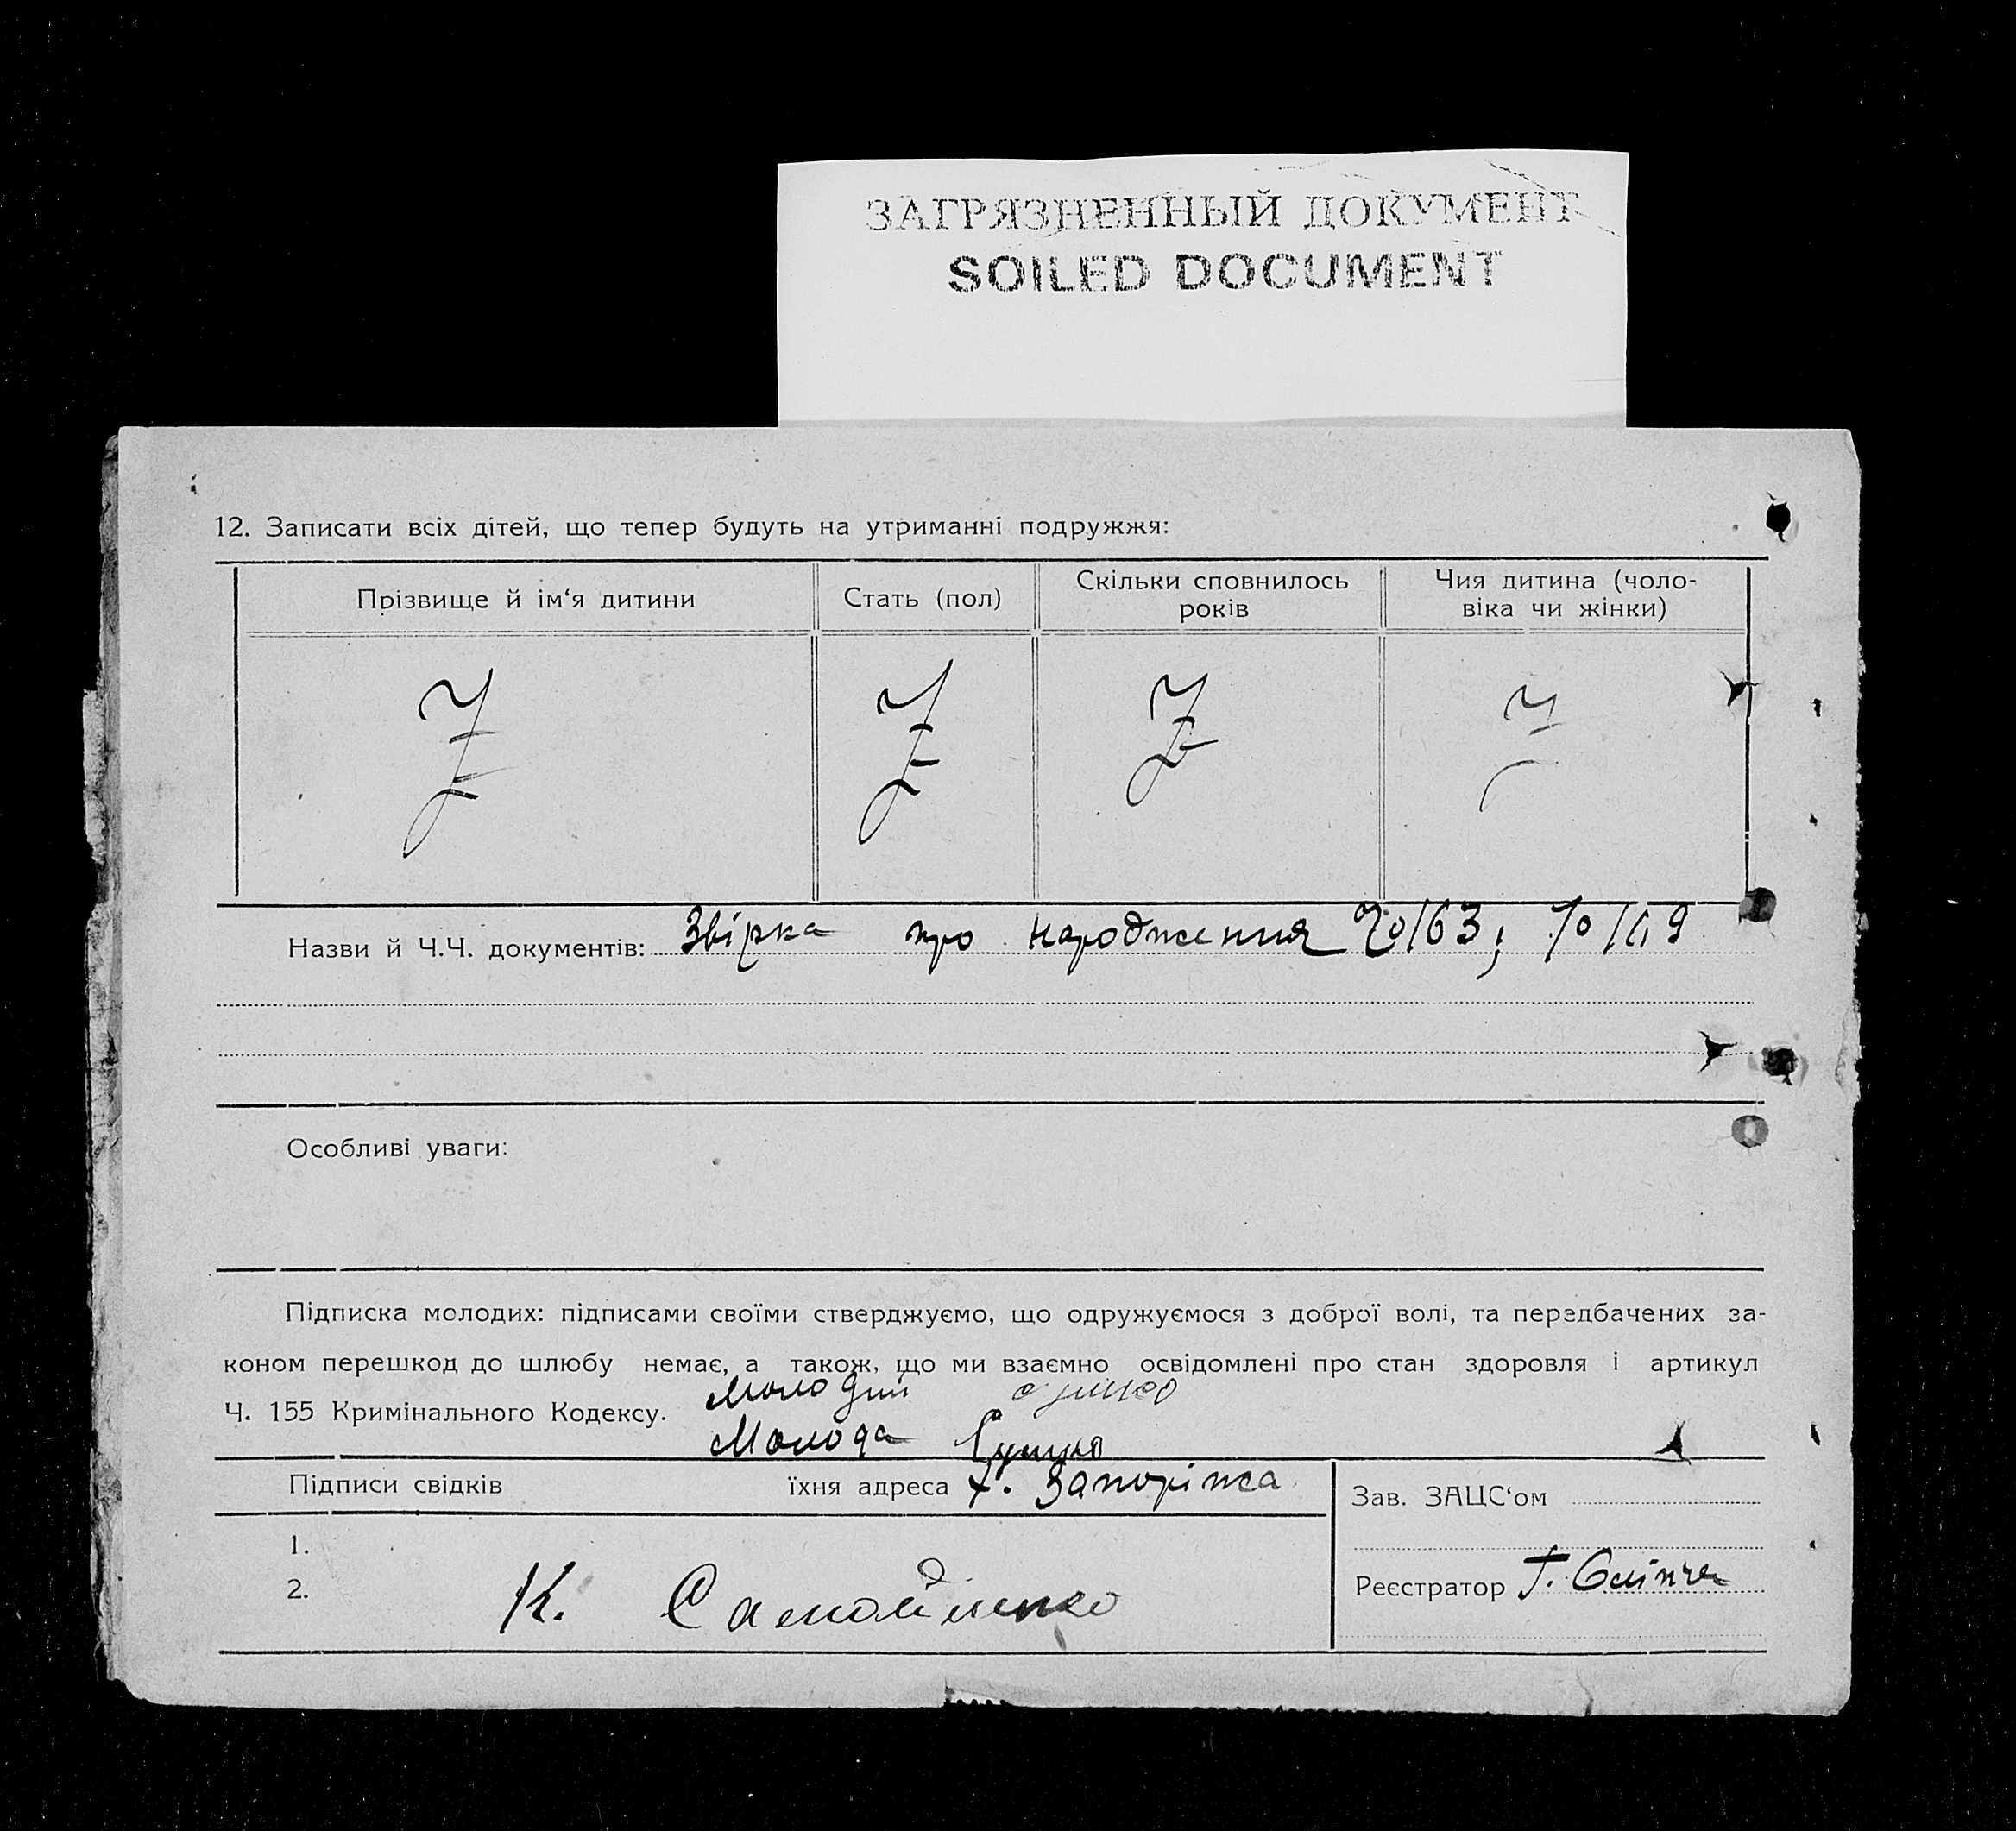 ЗАГРЯЗНЕННЫЙ ДОКУМЕНТ
SOILED DOCUMENT
12. Записати всіх дітей, що тепер будуть на утриманні подружжя:
Прізвище й ім‘я дитини
Стать (пол)
Скільки сповнилось
років
Чия дитина (чоло-
віка чи жінки)
Назви й Ч.Ч. документів: Звірка про народження
Особливі уваги:
Підписка молодих: підписами своїми стверджуємо, що одружуємося з доброї волі, та передбачених за-
коном перешкод до шлюбу немає, а також, що ми взаємно освідомлені про стан здоровля і артикул
Ч. 155 Кримінального Кодексу. Молодий
Молода
Підписи свідків їхня адреса х. Запоріжа
Зав. ЗАЦС‘ом
1.
2. К. Самойленко
Реєстратор Г.